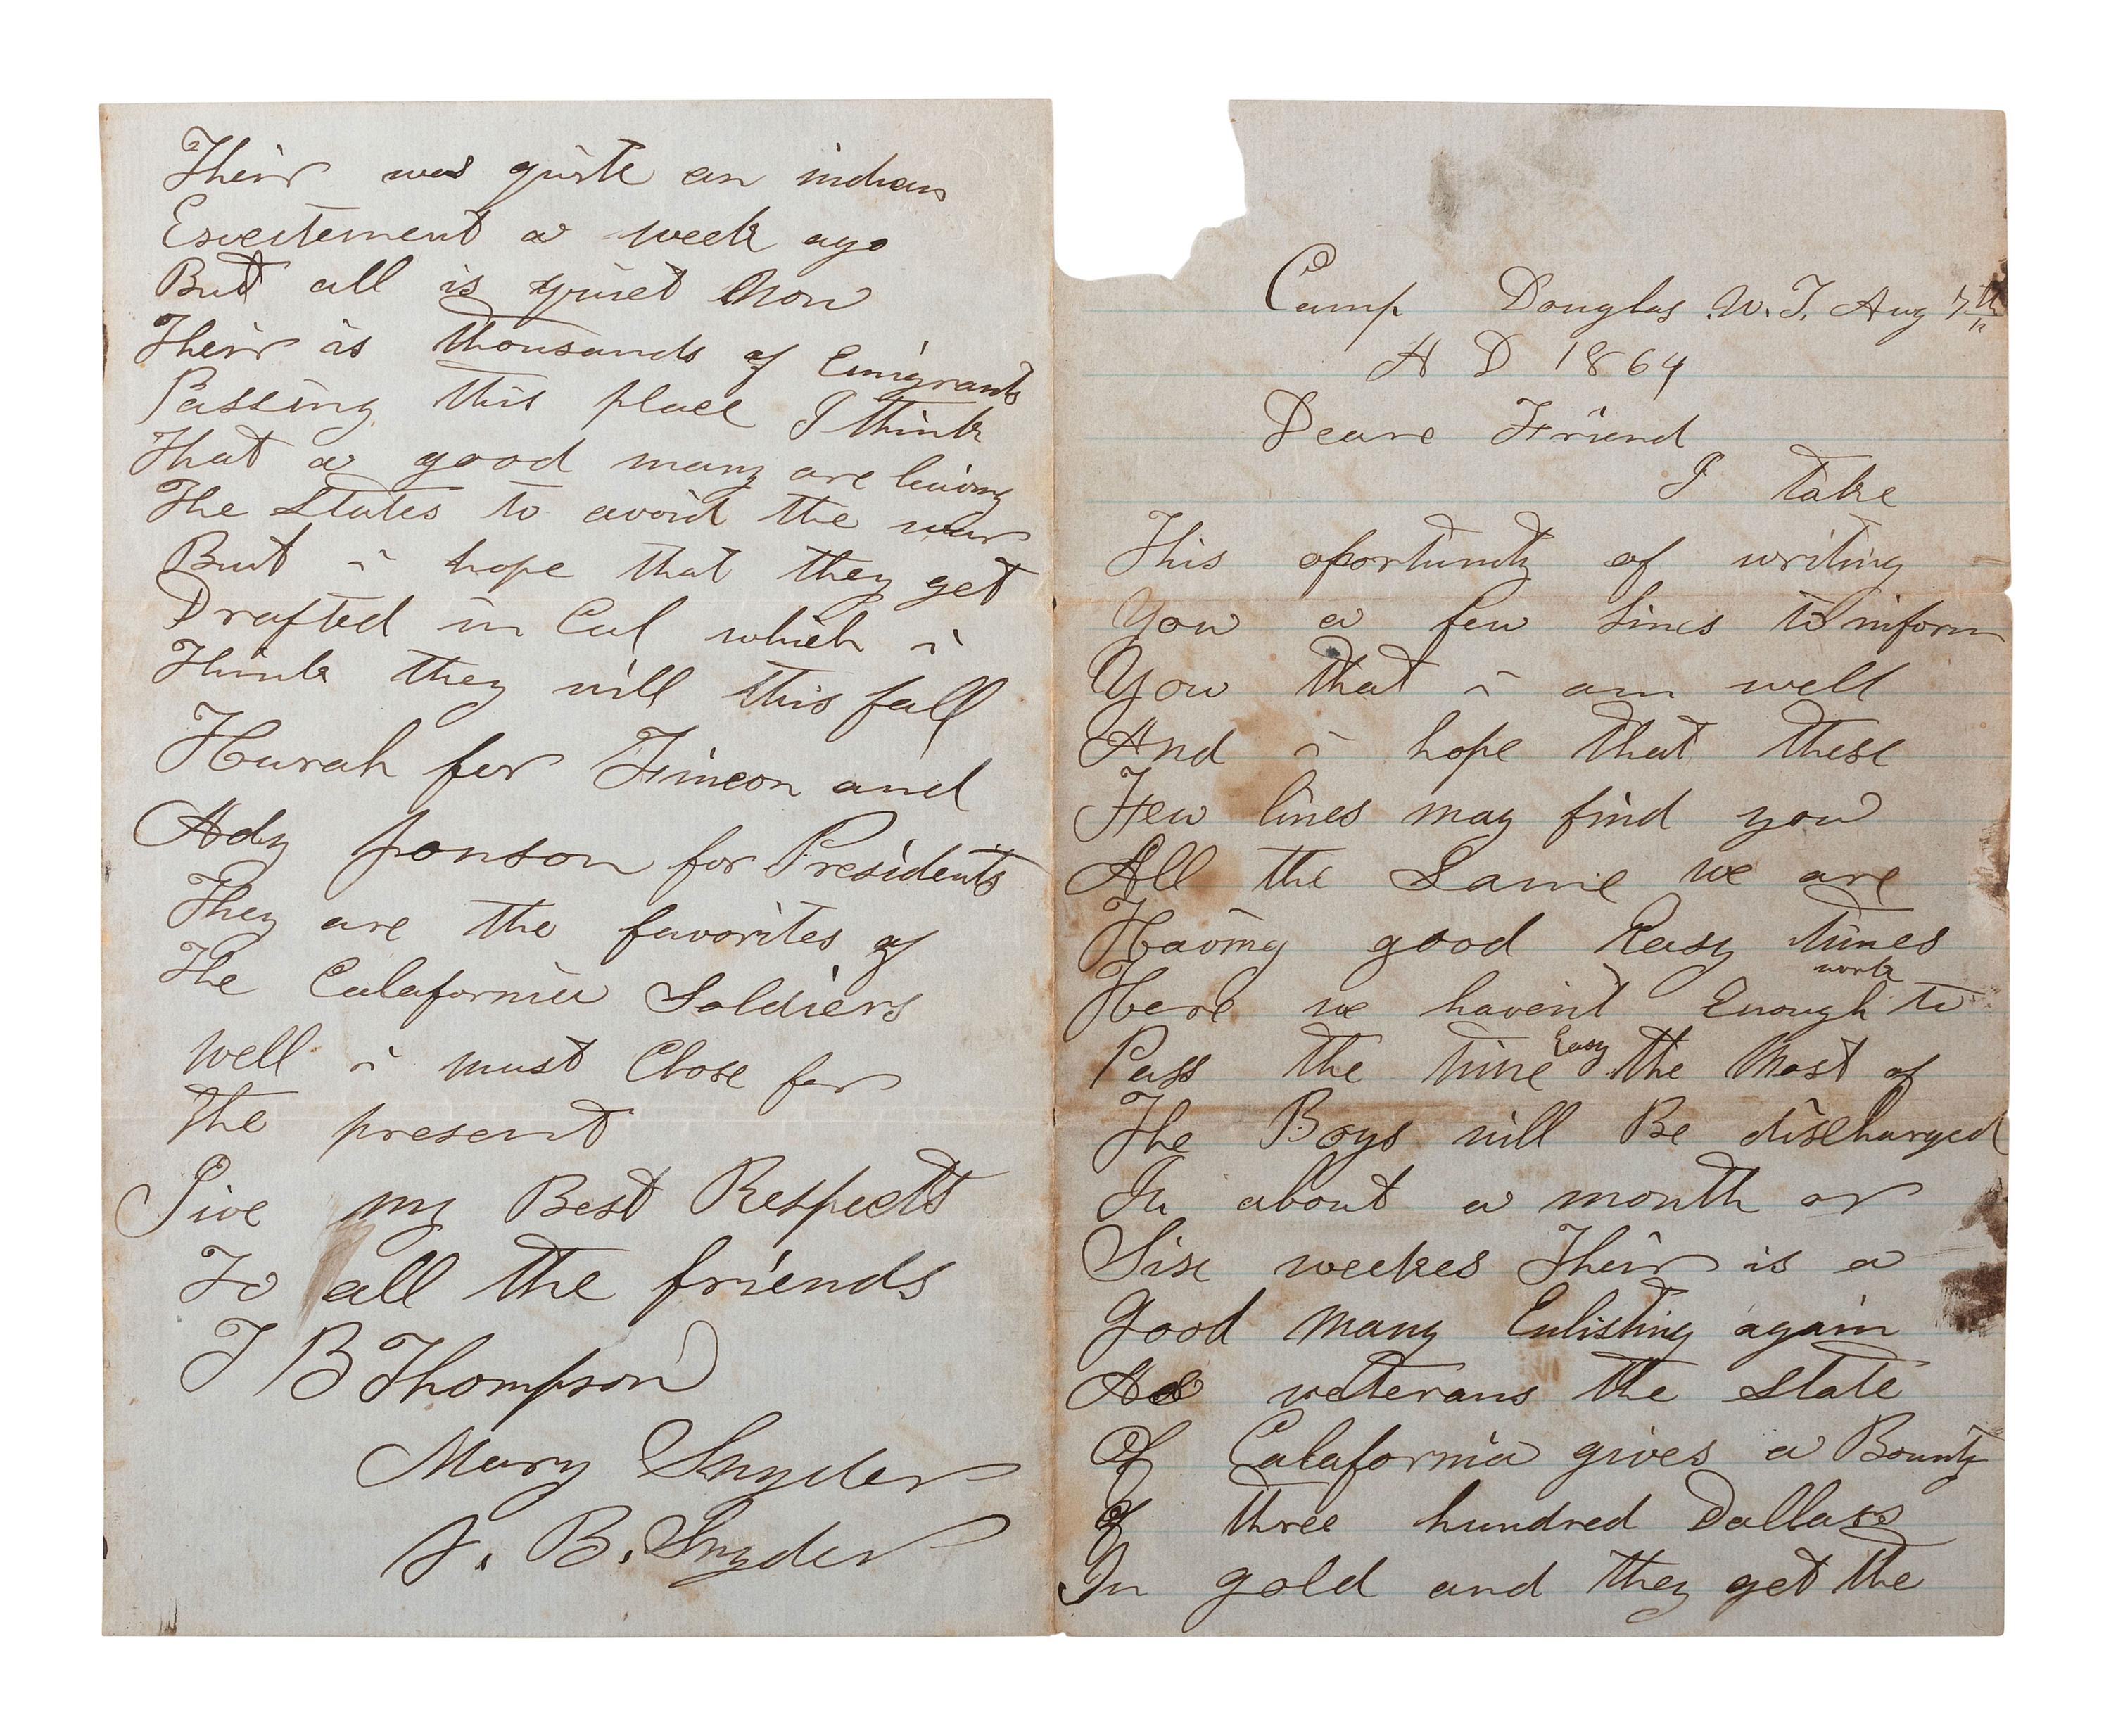 Camp Douglas U.T. Aug 7th
A D 1864
Deare Friend
I take
This oportunity of writing
You a few lines to inform
You that i am well
And i hope that these
Few lines may find you
All the Same we are
Having good Easy times
Here we havent Enough work to
Pass the time Easy the Most of
The Boys will Be discharged
In about a month or
Six weekes Their is a
Good Many Enlisting again
As veterans the State
Of Calafornia gives a Bounty
Of three hundred Dollars
In gold and they get the
Their was quite an indian
Excitement a week ago
But all is quiet Now
Their is thousands of Emigrants
Passing this place I think
That a good many are leiving
The States to avoid the war
But i hope that they get
Drafted in Cal which i
Think they will this fall
Hurah for Lincon and
Ady Jonson for Presidents
They are the favorites of
The Calafornia Soldiers
Well i must Close for
The present
Give my Best Respects
To all the friends
J B Thompson
Mary Snyder
J. B. Snyder